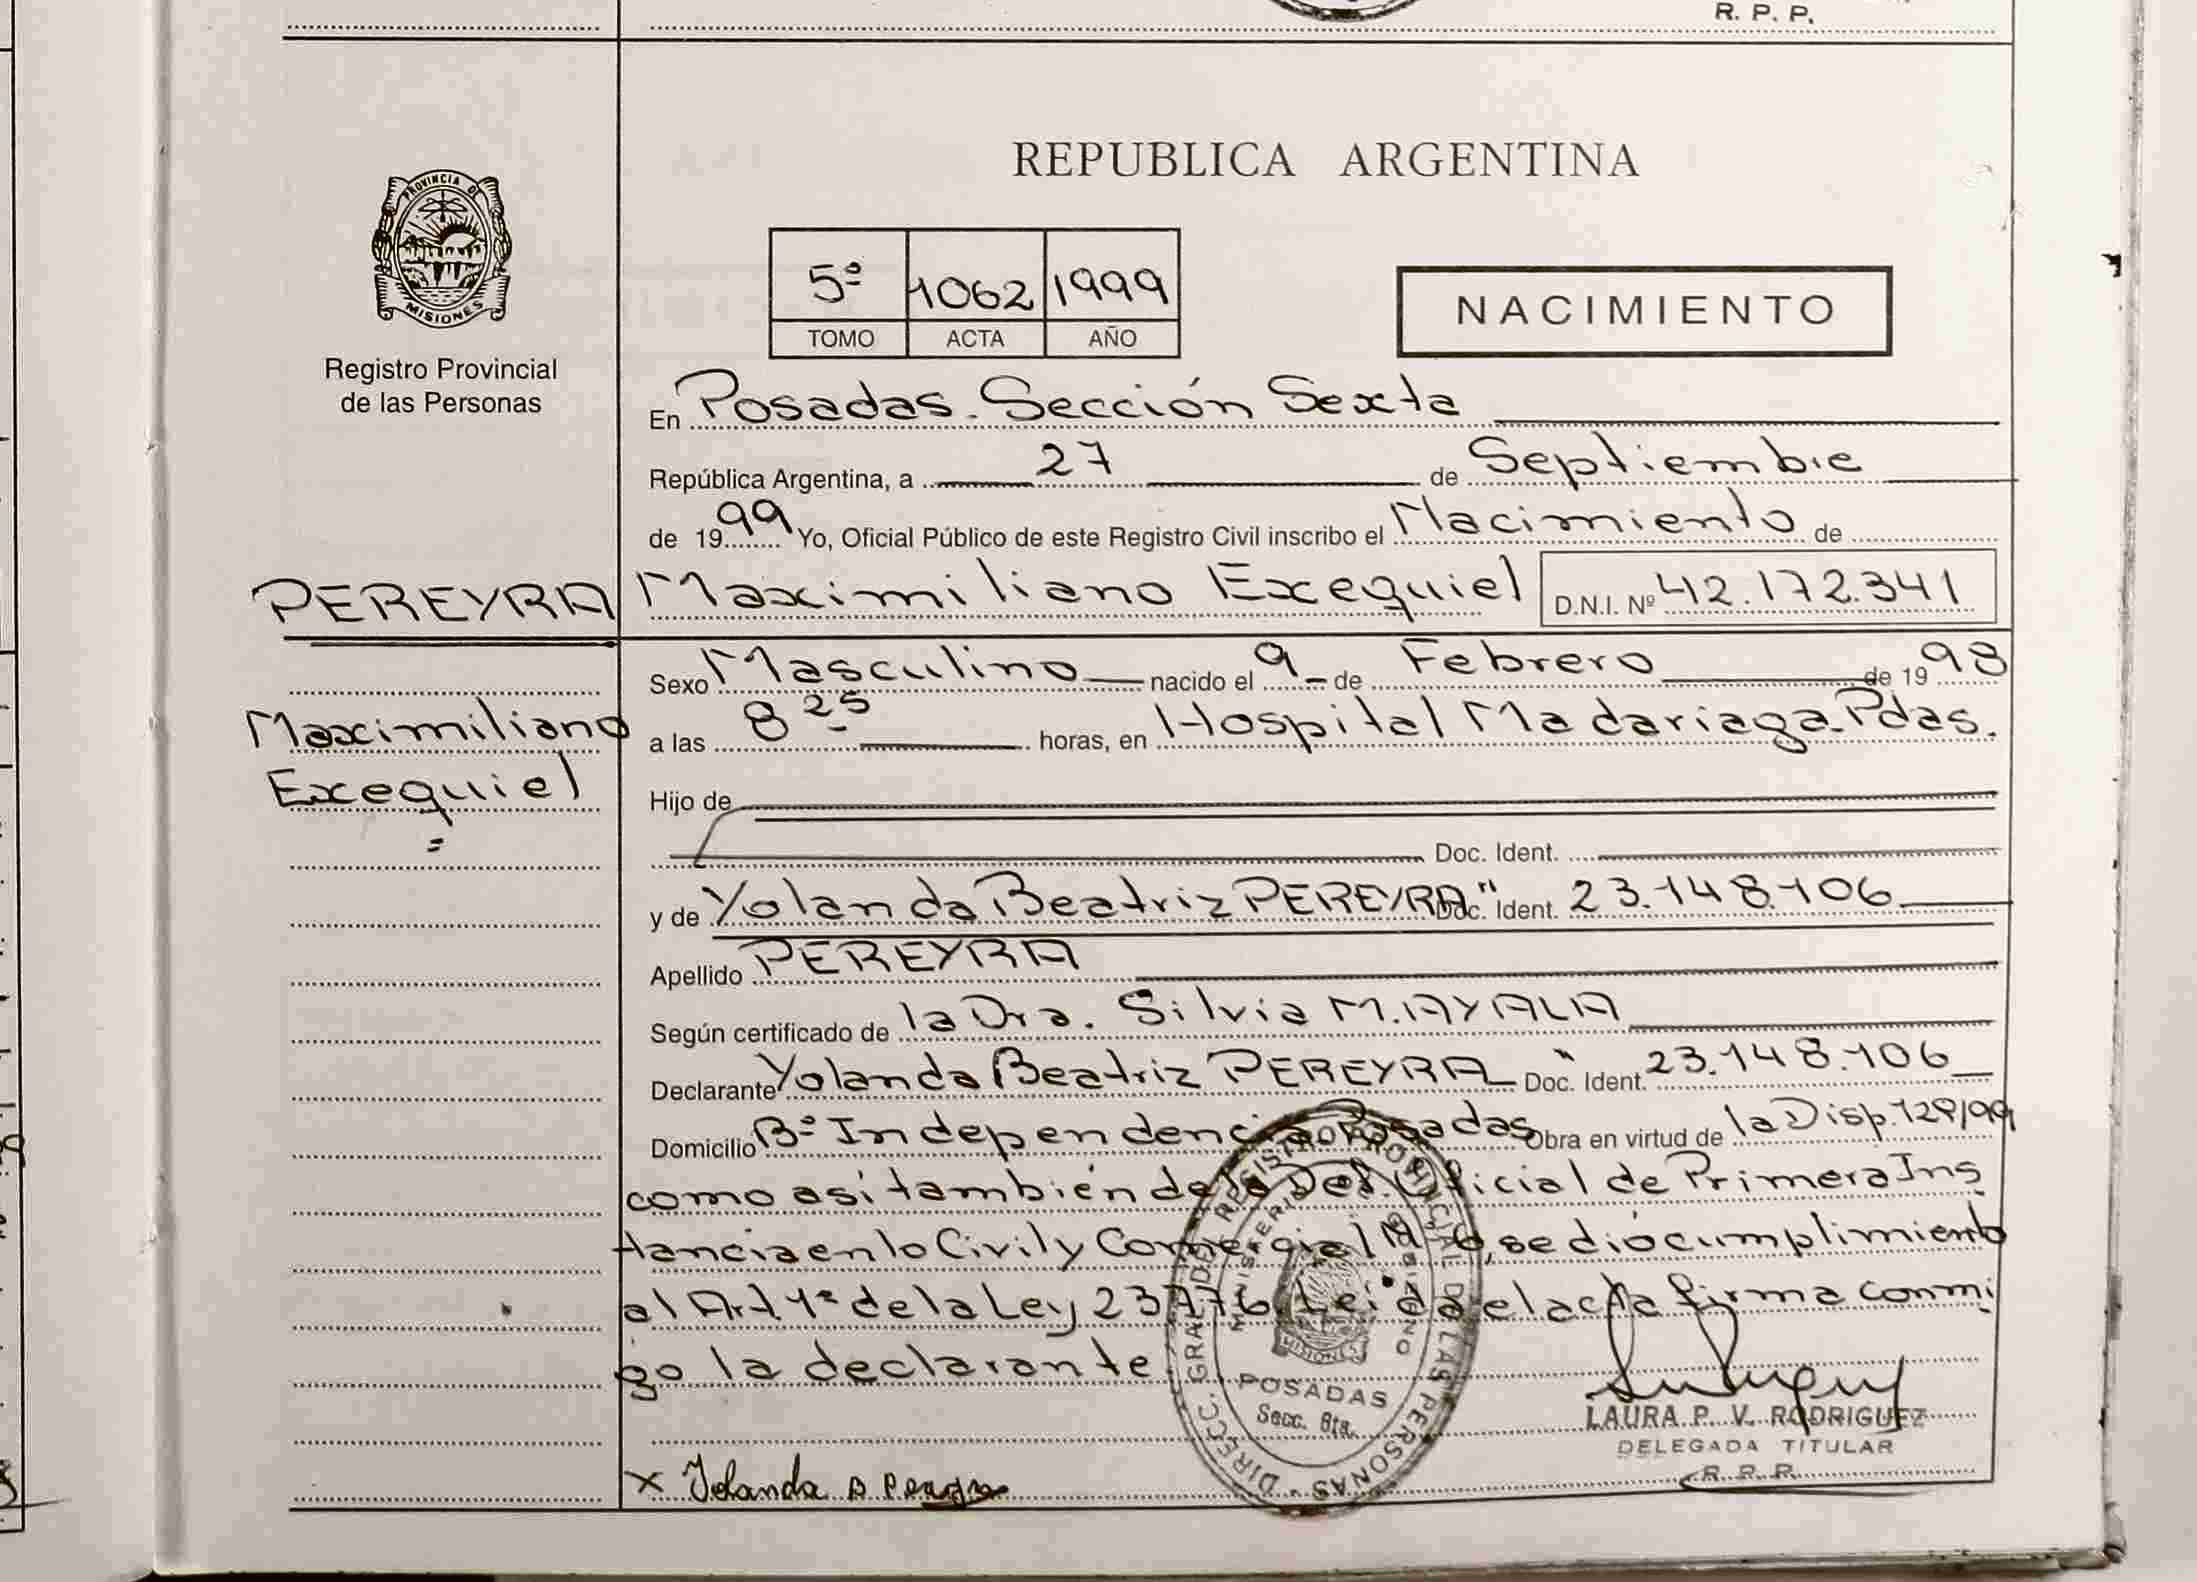 R. P. P.
PROVINCIA DE
MISIONES
Registro Provincial
de las Personas
REPUBLICA ARGENTINA
5º 1062 1999
TOMO ACTA AÑO
NACIMIENTO
En Posadas. Sección Sexta
República Argentina, a 27 de Septiembre
de 1999 Yo, Oficial Público de este Registro Civil inscribo el Nacimiento de
PEREYRA Maximiliano Exequiel D.N.I. Nº 42.172.341
Maximiliano
Exequiel
Sexo Masculino nacido el 9 de Febrero de 1998
a las 8 25 horas, en Hospital Madariaga-Pdas.
Hijo de
Doc. Ident.
y de Yolanda Beatriz PEREYRA Doc. Ident. " 23.148.106
Apellido PEREYRA
Según certificado de la Dra. Silvia M. AYALA
Declarante Yolanda Beatriz PEREYRA Doc. Ident. " 23.148.106
Domicilio Bº Independencia-Posadas Obra en virtud de la Disp. 129/99
como asi también de la Def. Oficial de Primera Ins
tancia en lo Civil y Comercial Nº 6, se dió cumplimiento
al Art 1º de la Ley 23776. Leída el acta firma conmi
go la declarante
DIRECC. GRAL DEL REGISTRO PROVINCIAL DE LAS PERSONAS
MINISTERIO GOBIERNO
MISIONES
POSADAS
Secc. 6ta.
LAURA P. V. RODRIGUEZ
DELEGADA TITULAR
R. P. P.
x Yolanda B Pereyra